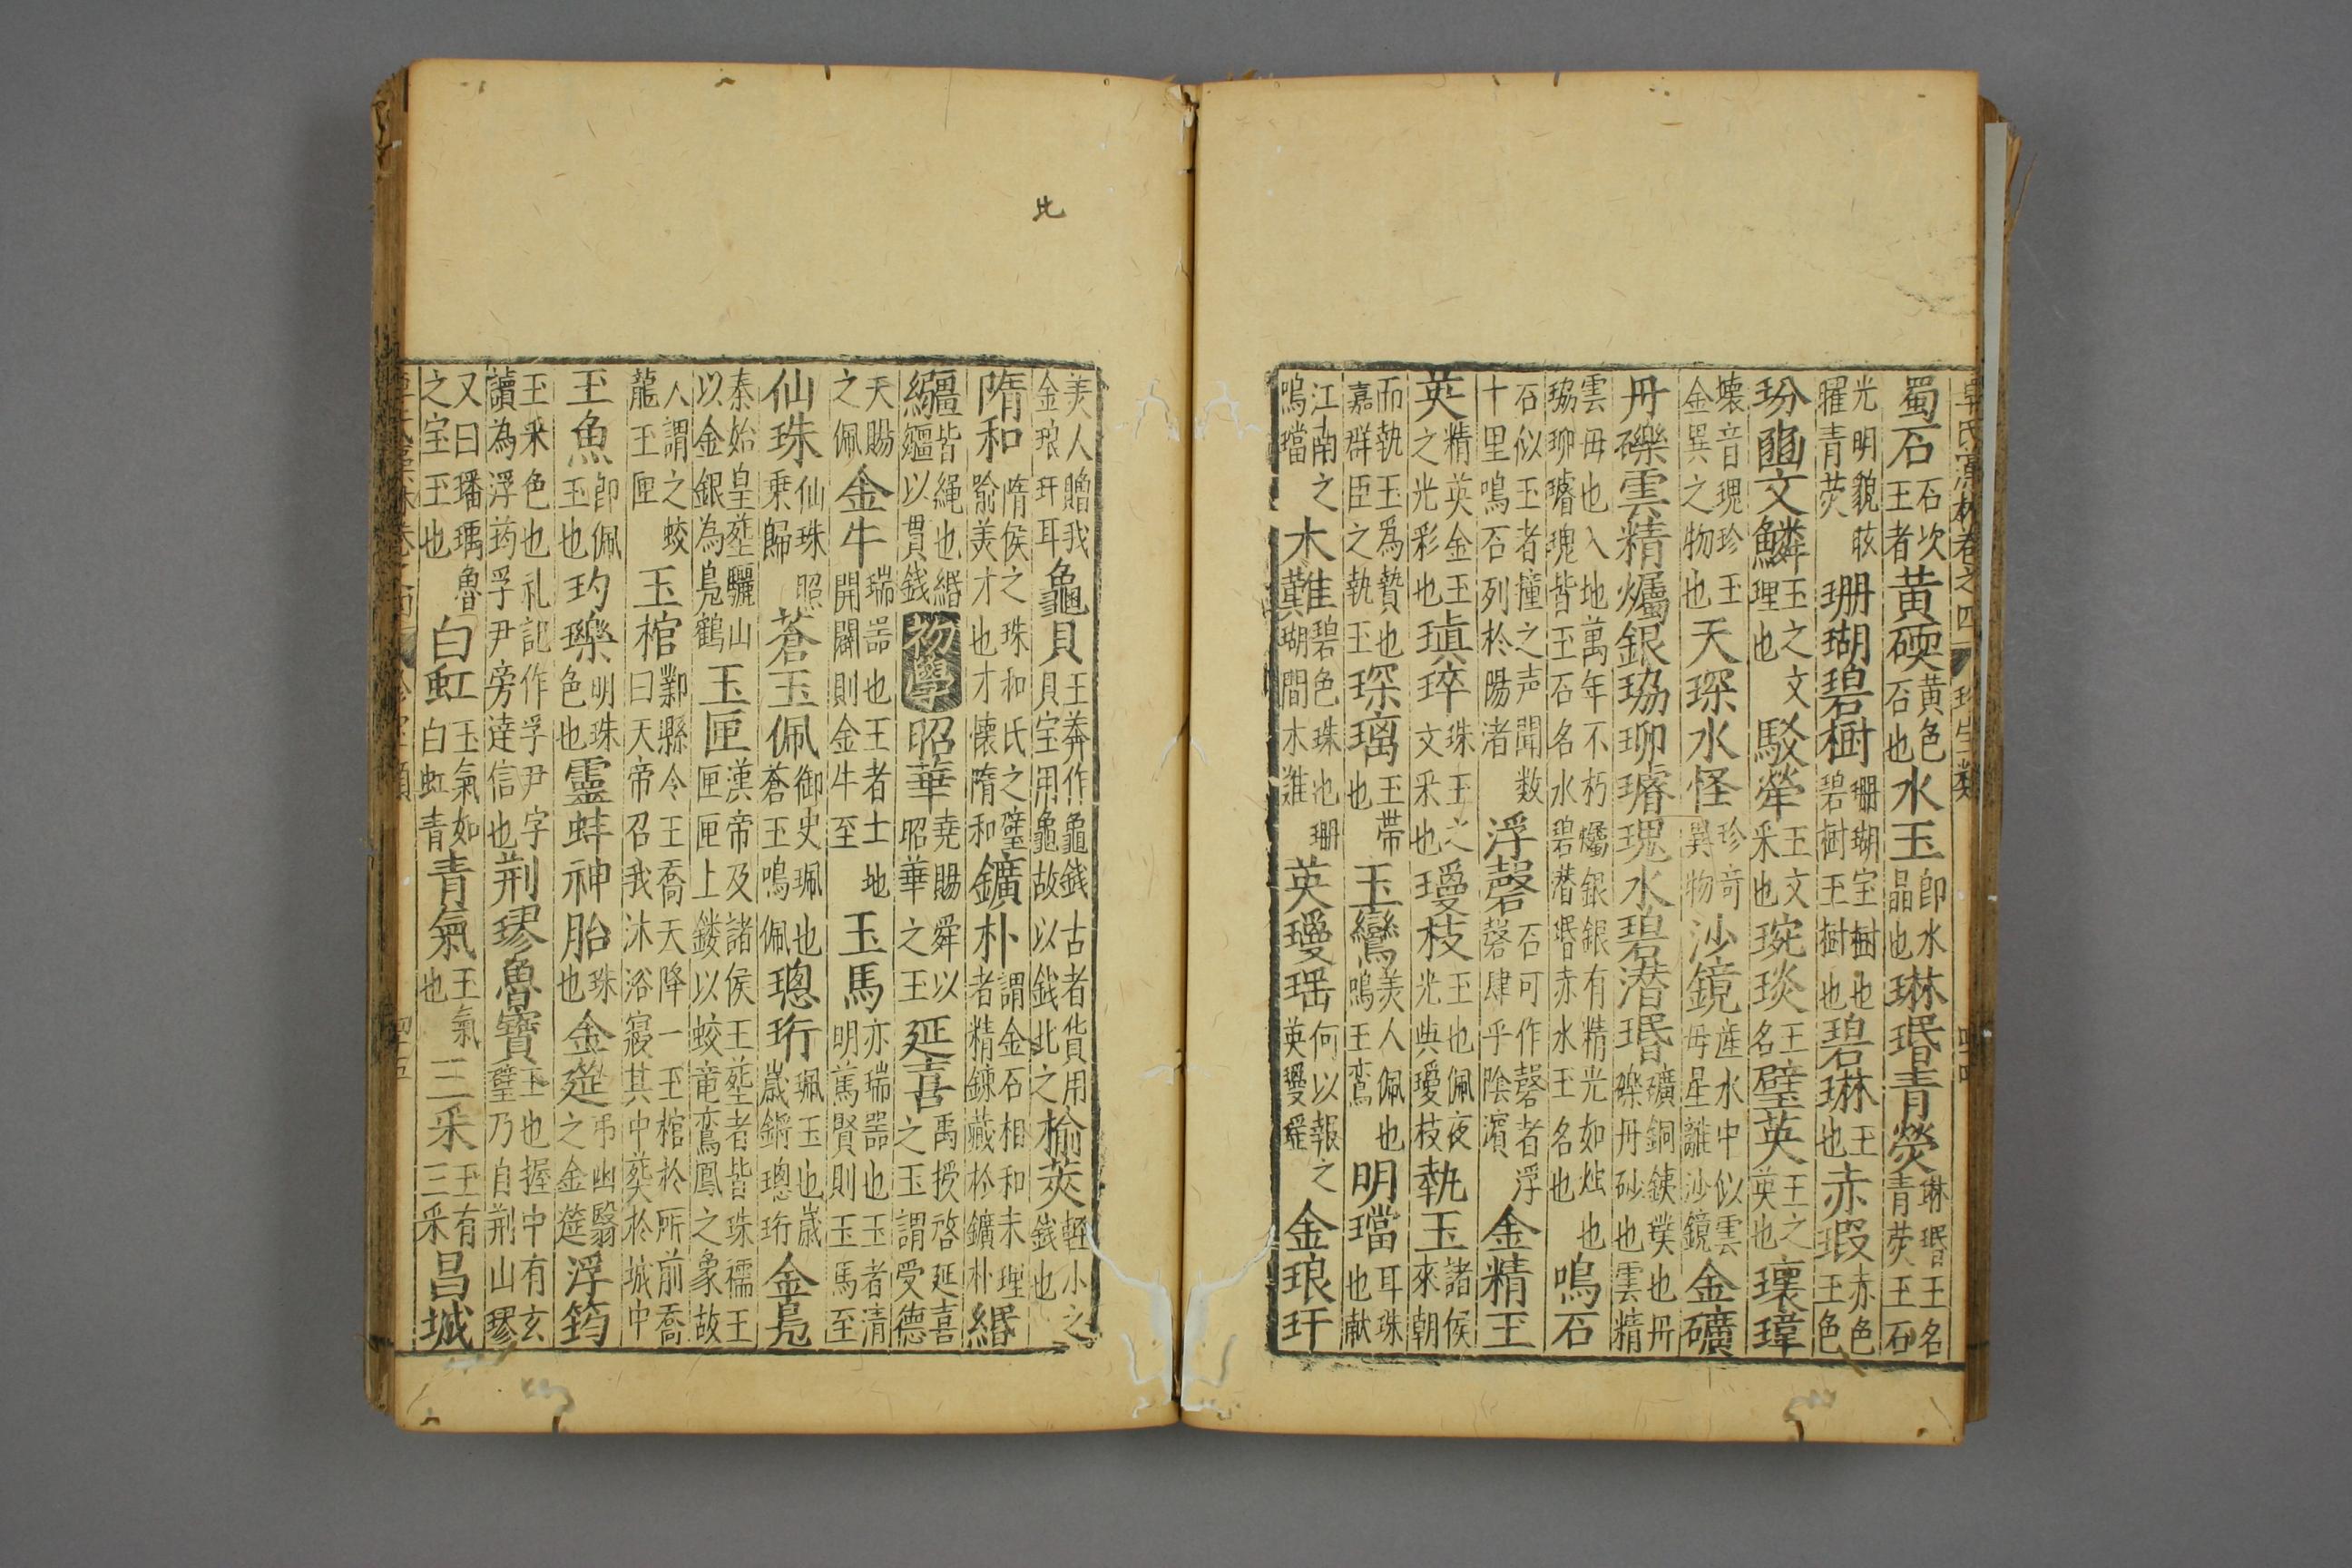 卓氏藻林卷之四 珍宝類 四十四
蜀石 石次王者 黄碝 黄色石也 水玉 即水晶也 琳珉青熒 琳珉王名青荧王石
光明貌胘矅青荧 珊瑚碧樹 珊瑚宝樹也碧樹王樹也 碧琳 王也 赤瑕 赤色王色
玢豳文鱗 玉之文理也 駁犖 王文采也 琬琰 王名 璧英 王之英也 瓌瑋
壊音瑰珍王金異之物也 天琛水怪 珍竒異物 沙鏡 産水中似雲母星離沙鏡 金礦
丹礫雲精爥銀珕珋璿瑰水碧潜珉 礦銅鉄璞也丹礫丹砂也雲精
雲毋也入地萬年不朽爥銀銀有精光如烛也珕珋璿瑰皆王石名水碧潜珉赤水王名也 鳴石
石似玉者撞之声聞数十里鳴石列於陽渚 浮磬 石可作磬者浮磬肆乎陰濱 金精王
英 精英金玉之光彩也 瑱琗 珠玉之文采也 璦枝 王也佩夜光與璦枝 執玉 諸侯來朝
而執玉爲贄也嘉群臣之執玉 琛璃 王帶也 玉鸞 美人佩也鳴王鸾 明璫 耳珠也献
江南之鳴璫 木難 碧色珠也珊瑚間木難 英璦瑶 何以報之英璦瑶 金琅玕
美人贈我金琅玕耳 龜貝 王莽作龜錢貝宝用龜故 古者貨用以錢此之 榆莢 輕小之錢也
隋和 隋侯之珠和氏之璧喻美才也才懐隋和 鑛朴 謂金石相和未理者精錬藏於鑛朴 緡
繦 皆繩也緡繦以貫錢 初學 昭華 堯賜舜以昭華之王 延喜 禹授啓延喜之玉謂受德
天賜之佩 金牛 瑞噐也王者土地開闢則金牛至 玉馬 亦瑞噐也王者清明篤賢則玉馬至
仙珠 仙珠照乗歸 蒼玉佩 御史珮也蒼玉鳴佩 璁珩 珮玉也嵗嵗鏘璁珩 金鳬
秦始皇塟驪山以金銀為鳬鶴 玉匣 漢帝及諸侯王塟者皆珠襦王匣匣上鏤以蛟竜鸾鳳之象故
人謂之蛟龍王匣 玉棺 鄴縣令王喬天降一王棺於所前喬曰天帝召我沐浴寢其中葵於城中
玉魚 即佩玉也 玓瓅 明珠色也 靈蚌神胎 珠也 金莚 弔幽翳之金莚 浮筠
玉采色也礼記作孚尹字讀為浮筠孚尹旁逹信也 荆璆魯寳 玉也握中有玄璧乃自荆山璆
又曰璠璵魯之宝王也 白虹 玉氣如白虹青 青氣 王氣也 三采 王有三采 昌城
四十五
比